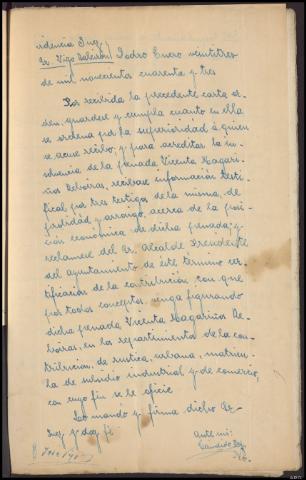 idencia Juez
Sr. Vigo
Padrón Enero veintitres
de mil novecientos cuarenta y tres
Por recibida la precedente carta or-
den, guardese y cumpla cuanto en ella
se ordena por la superioridad á quien
se acuse recibo; y para acreditar la in-
solvencia de la penada Vicenta Magari-
ños Reboiras, recibase información testi-
fical por tres testigos de la misma, de
probidad y arraigo, acerca de la posi-
ción económica de dicha penada; y
reclamese del Sr. Alcalde Presidente
del ayuntamiento de éste término cer-
tificación de la contribución con que
por todos conceptos, venga figurando
dicha penada, Vicenta Magariños Re-
boiras, en los repartimientos de la con-
tribución, de rustica, urbana, matricu-
la de subsidio industrial y de comercio,
con cuyo fin se le oficie
Lo mandó y firma dicho Sr.
Juez y doy fé
Ante mi: